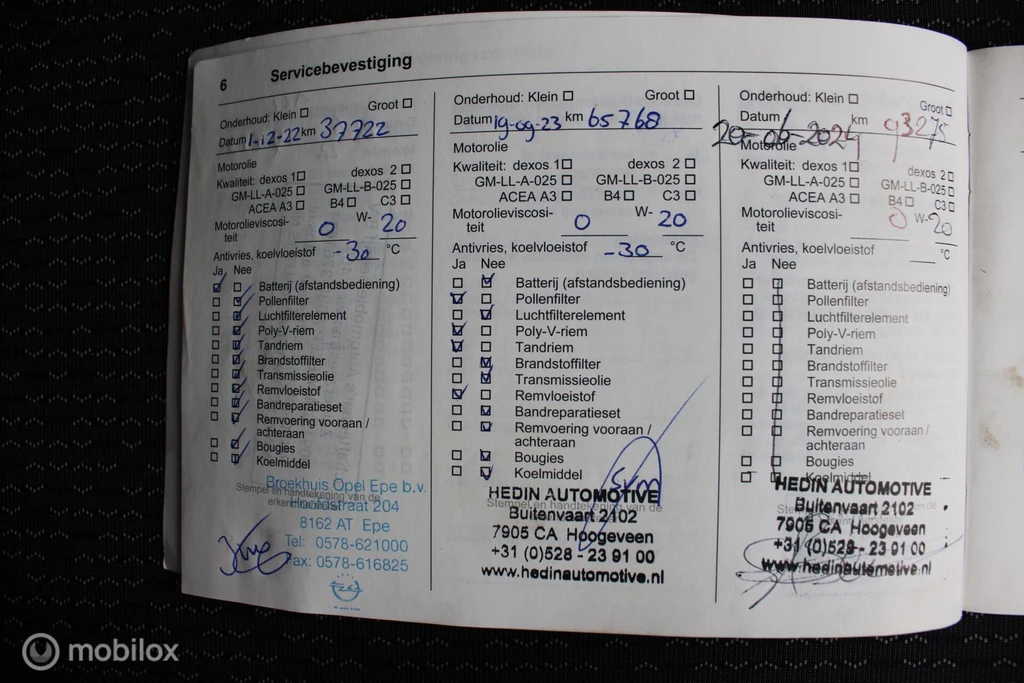 6 Servicebevestiging
Onderhoud: Klein Groot
Datum 1-12-22 km 37722
Motorolie
Kwaliteit: dexos 1 dexos 2
GM-LL-A-025 GM-LL-B-025
ACEA A3 B4 C3
Motorolieviscosi-
teit 0 W- 20
Antivries, koelvloeistof -30 °C
Ja Nee
Batterij (afstandsbediening)
Pollenfilter
Luchtfilterelement
Poly-V-riem
Tandriem
Brandstoffilter
Transmissieolie
Remvloeistof
Bandreparatieset
Remvoering vooraan /
achteraan
Bougies
Koelmiddel
Stempel en handtekening van de
Broekhuis Opel Epe b.v.
Hoofdstraat 204
8162 AT Epe
Tel: 0578-621000
Fax: 0578-616825
Onderhoud: Klein Groot
Datum 19-09-23 km 65768
Motorolie
Kwaliteit: dexos 1 dexos 2
GM-LL-A-025 GM-LL-B-025
ACEA A3 B4 C3
Motorolieviscosi-
teit 0 W- 20
Antivries, koelvloeistof -30 °C
Ja Nee
Batterij (afstandsbediening)
Pollenfilter
Luchtfilterelement
Poly-V-riem
Tandriem
Brandstoffilter
Transmissieolie
Remvloeistof
Bandreparatieset
Remvoering vooraan /
achteraan
Bougies
Koelmiddel
Stempel en handtekening van de
HEDIN AUTOMOTIVE
Buitenvaart 2102
7905 CA Hoogeveen
+31 (0)528 - 23 91 00
www.hedinautomotive.nl
Onderhoud: Klein Groot
Datum 20-06-2024 km 93275
Motorolie
Kwaliteit: dexos 1 dexos 2
GM-LL-A-025 GM-LL-B-025
ACEA A3 B4 C3
Motorolieviscosi-
teit 0 W- 20
Antivries, koelvloeistof °C
Ja Nee
Batterij (afstandsbediening)
Pollenfilter
Luchtfilterelement
Poly-V-riem
Tandriem
Brandstoffilter
Transmissieolie
Remvloeistof
Bandreparatieset
Remvoering vooraan /
achteraan
Bougies
Koelmiddel
HEDIN AUTOMOTIVE
Buitenvaart 2102
7905 CA Hoogeveen
+31 (0)528 - 23 91 00
www.hedinautomotive.nl
mobilox